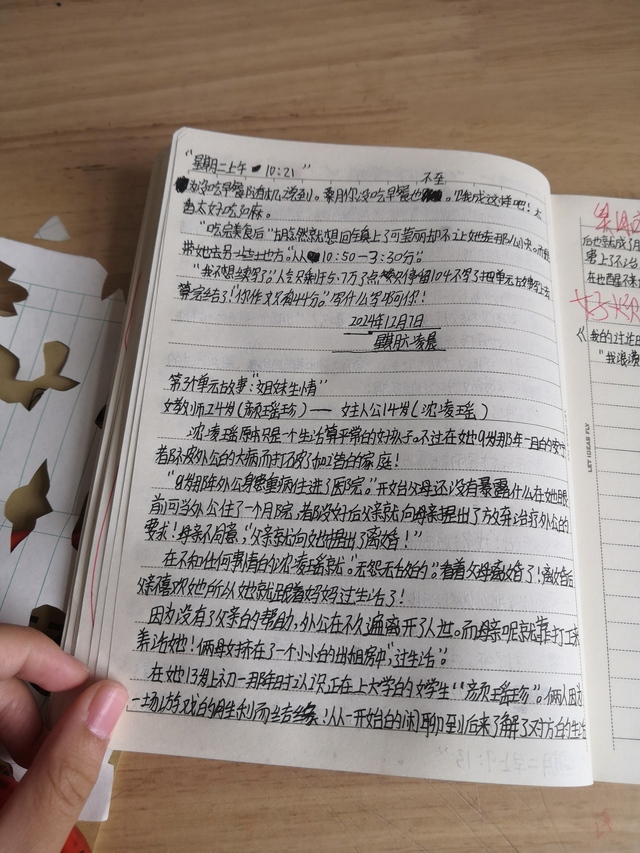 "星期二上午 10:21"
不至
为没吃早餐随机凌到。乘月你没吃早餐也。饿成这样吧！太
当太好吃如麻。
"吃完美食后"胡然就想回车上了可莹丽却不让她去那么小中。而
带她去另一些地方。从10:50—3:30分。
"我不想续写了"人气只剩斤5.7万了点赞只停留104不写了把单元故事写上去
算完结了！"你作文只有44分。写什么写啊你！
2024年12月7日
星期六凌晨
第3个单元故事："姐妹生情"
女教师24岁（颜瑶瑶）—— 女主人公14岁（沈凌瑶）
沈凌瑶原本只是一个生活算平常的好孩子。不过在她9岁那年一目的安
着外公的大病而打破了和谐的家庭！
"9岁那年外公身患重病住进了医院。"开始父母还没有暴露什么在她眼
前可当外公住了一个月院，着都没好后父亲就向母亲提出了放弃治疗外公的
要求！母亲不同意，"父亲就向她提出了离婚！
在不知任何事情的沈凌瑶就。"无怨无台的"。看着父母离婚了！离婚后
亲喜欢她所以她就跟着妈妈过生活了！
因为没有了父亲的帮助，外公在不久遍离开了人世。而母亲呢就靠打工
养活她！俩母女挤在了一个小小的出租房中，"过生活"。
在她13岁上初一那年时认识正在上大学的女学生"颜瑶瑶"。俩人因
一场游戏的胜利而结缘！从一开始的闲聊到后来了解了对方的生活
LET IDEAS FLY
后也
《我的过往
"我浪漫